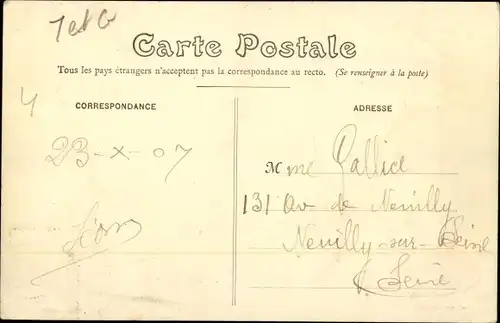 Carte Postale
Tous les pays étrangers n'acceptent pas la correspondance au recto. (Se renseigner à la poste)
CORRESPONDANCE
23-X-07
ADRESSE
Mme
131 Av de Neuilly
Neuilly-sur-Seine
Seine
4